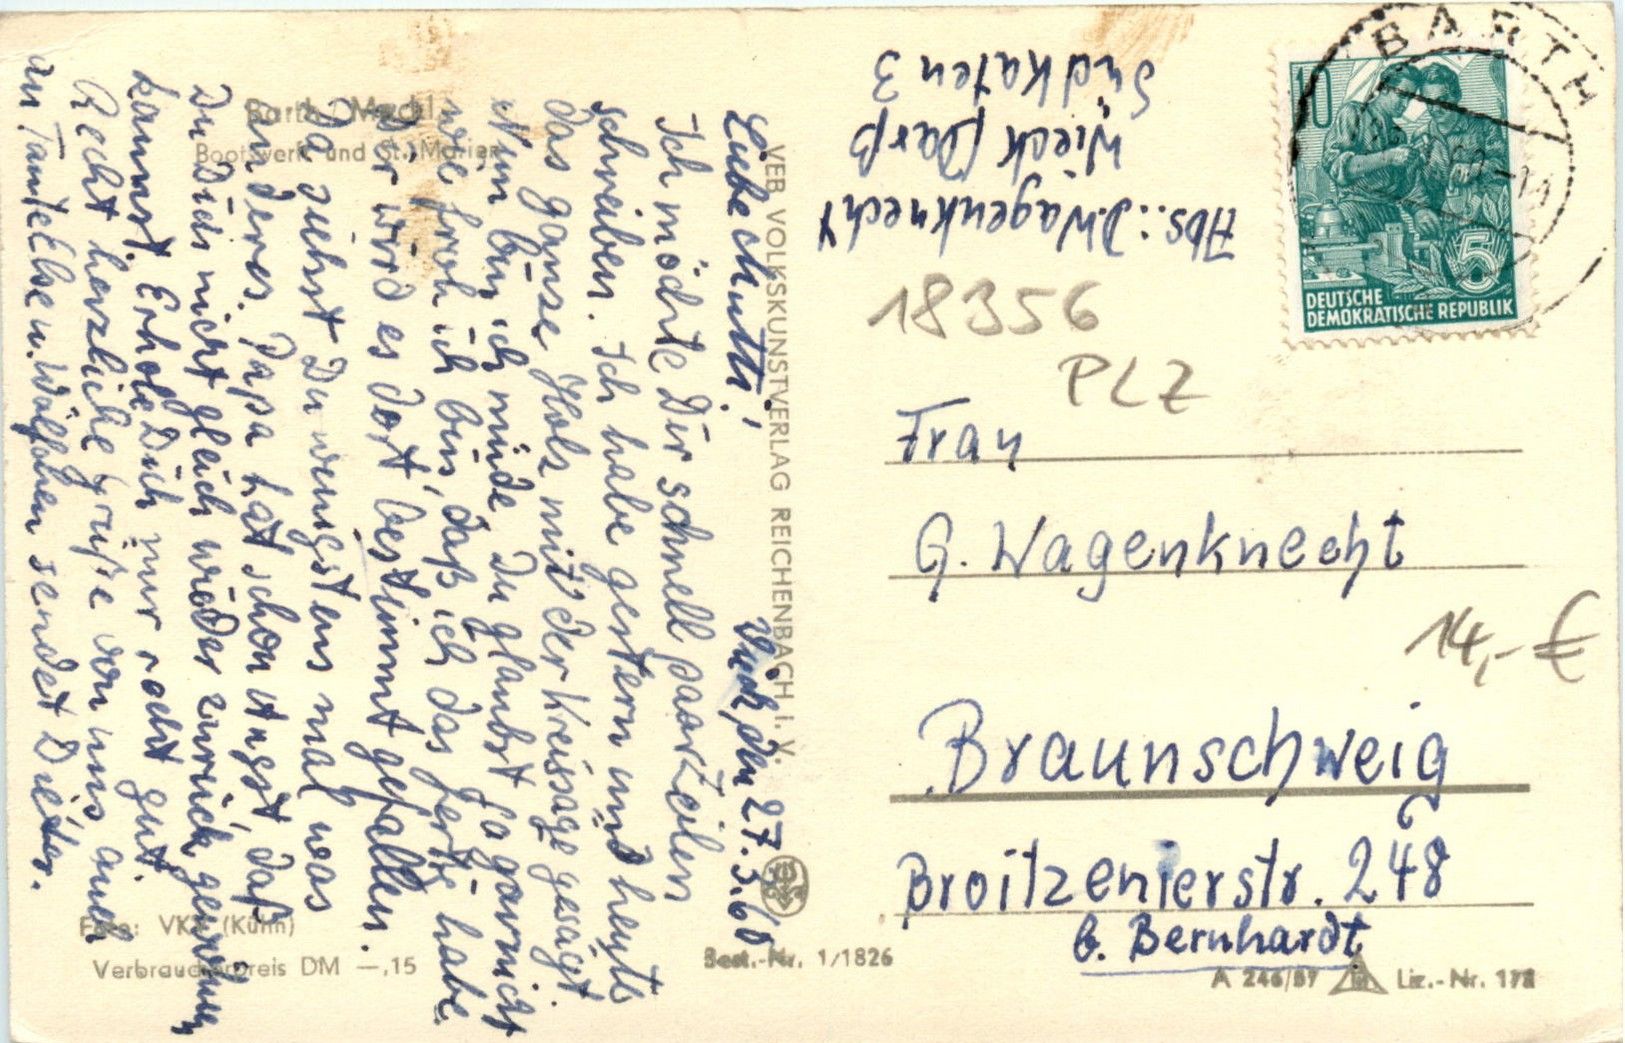 Barth / Meckl.
Bootswerft und St. Marien
Wieck, den 27.3.60
Liebe Mutti!
Ich möchte Dir schnell paar Zeilen
schreiben. Ich habe gestern und heute
das ganze Holz mit der Kreissäge gesägt.
Nun bin ich müde, Du glaubst ja garnicht
wie froh ich bin, daß ich das fertig habe.
Dir wird es dort bestimmt gefallen.
Da siehst Du wenigstens mal was
anderes. Papa hat schon Angst, daß
Du Dich nicht gleich wieder zurück gewöhnen
kannst. Erhole Dich nur recht gut.
Recht herzliche Grüße von uns auch
an Tante Else u. Wölfchen sendet Dieter.
Foto: VKV (Kühn)
Verbraucherpreis DM —,15
VEB VOLKSKUNSTVERLAG REICHENBACH I. V.
Best.-Nr. 1/1826
Abs.: D. Wagenknecht
Wieck / Darß
Südkaten 3
BARTH
10
5
DEUTSCHE
DEMOKRATISCHE REPUBLIK
18356
PLZ
Frau
G. Wagenknecht
14,- €
Braunschweig
Broitzenierstr. 248
b. Bernhardt
A 246/57 Liz.-Nr. 178